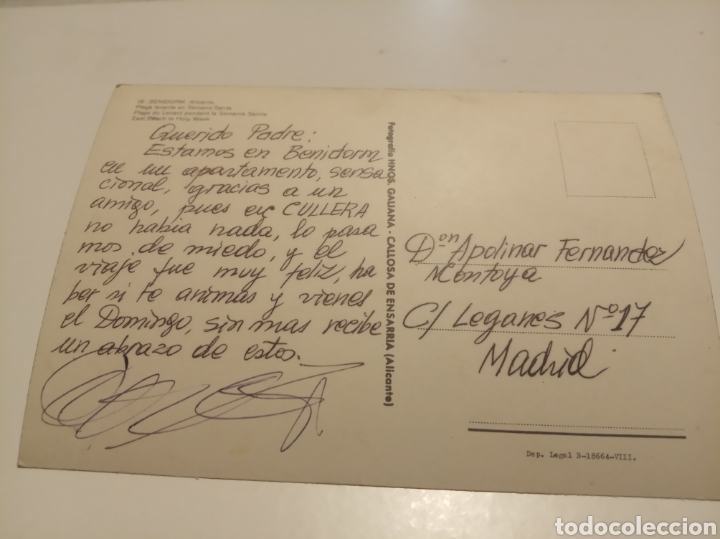 BENIDORM (Alicante)
Playa levante en Semana Santa
Plage du Levant pendant la Semaine Sainte
East Beach at Holy Week
Querido Padre:
Estamos en Benidorm
en un apartamento, sensa
cional, gracias a un
amigo, pues en CULLERA
no habia nada, lo pasa
mos de miedo, y el
viaje fue muy feliz, ha
ber si te animas y vienes
el Domingo, sin mas recibe
un abrazo de estos.
Fotografía HNOS. GALIANA - CALLOSA DE ENSARRIA (Alicante)
Don Apolinar Fernandez
Montoya
C/ Leganes Nº 17
Madrid
Dep. Legal B-18664-VIII.
todocoleccion